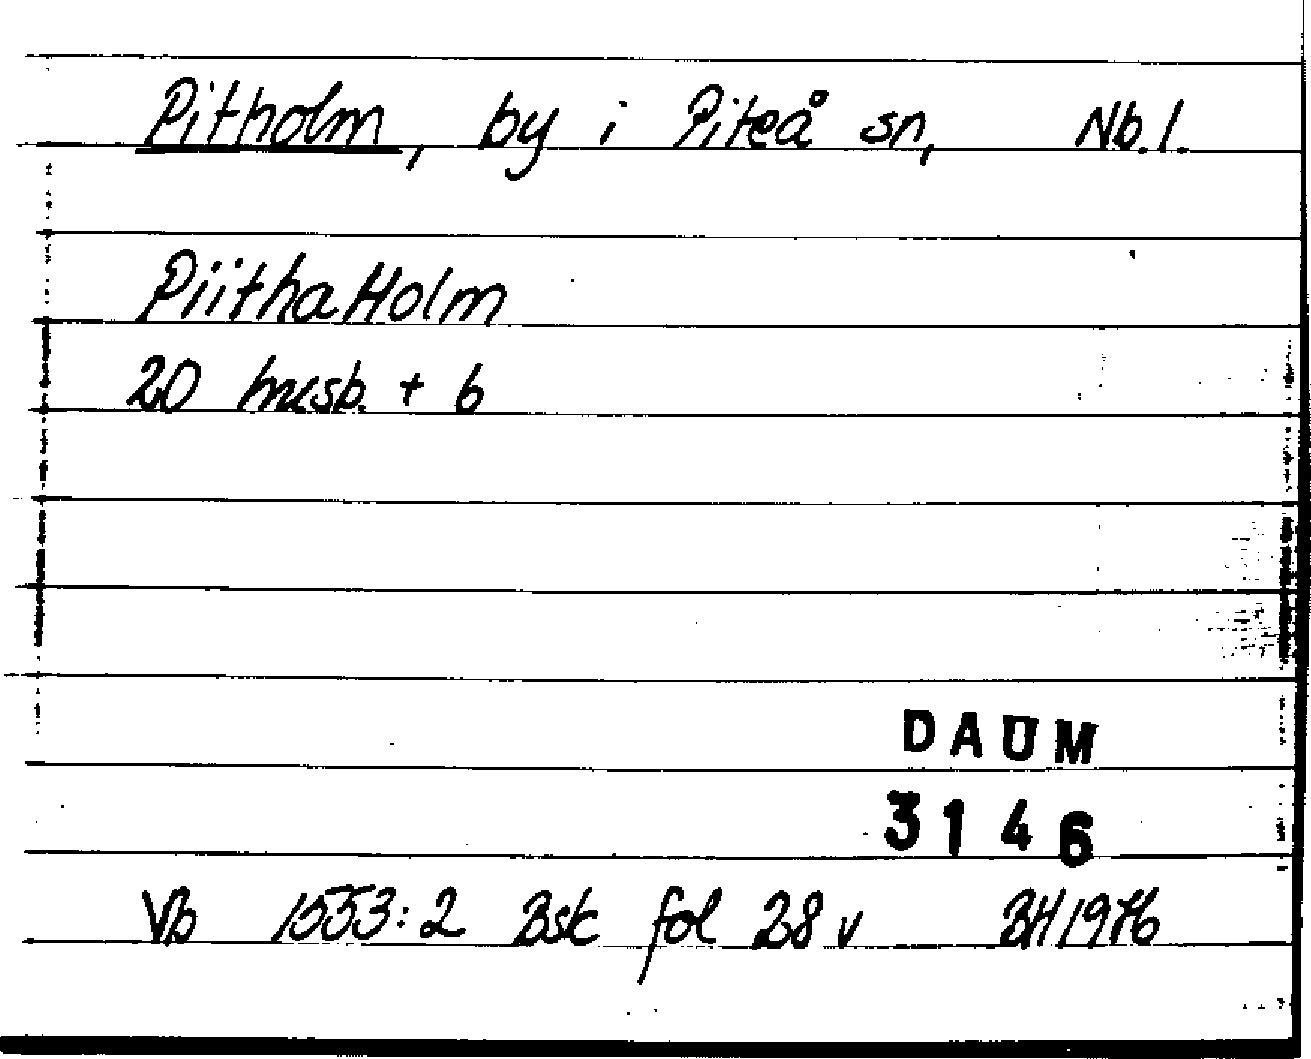 Pitholm, by i Piteå sn, Nb.l.
PiithaHolm
20 mksb. + 6
DAUM
3146
Vb 1553:2 Bsk fol 28 v BH 1976